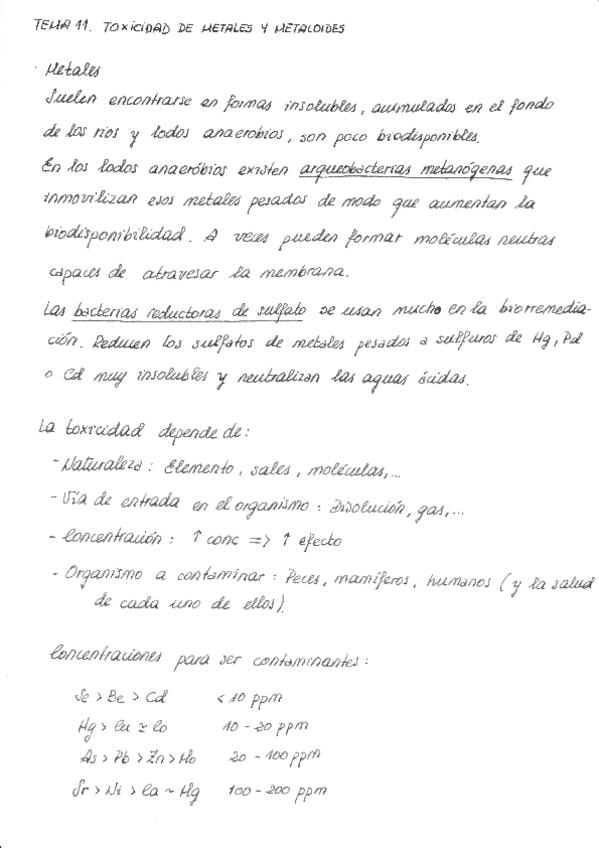 TEMA 11. TOXICIDAD DE METALES Y METALOIDES
· Metales
Suelen encontrarse en formas insolubles, acumulados en el fondo
de los rios y lodos anaerobios, son poco biodisponibles.
En los lodos anaeróbios existen arqueobacterias metanógenas que
inmovilizan esos metales pesados de modo que aumentan la
biodisponibilidad. A veces pueden formar moléculas neutras
capaces de atravesar la membrana.
Las bacterias reductoras de sulfato se usan mucho en la biorremedia-
ción. Reducen los sulfatos de metales pesados a sulfuros de Hg, Pd
o Cd muy insolubles y neutralizan las aguas ácidas.
La toxicidad depende de:
- Naturaleza: Elemento, sales, moléculas,...
- Vía de entrada en el organismo: Disolución, gas,...
- Concentración: ↑ conc => ↑ efecto
- Organismo a contaminar: Peces, mamíferos, humanos (y la salud
de cada uno de ellos).
Concentraciones para ser contaminantes:
Se > Be > Cd < 10 ppm
Hg > Cu ≃ Co 10 - 20 ppm
As > Pb > Zn > Mo 20 - 100 ppm
Sr > Ni > Ca ~ Mg 100 - 200 ppm